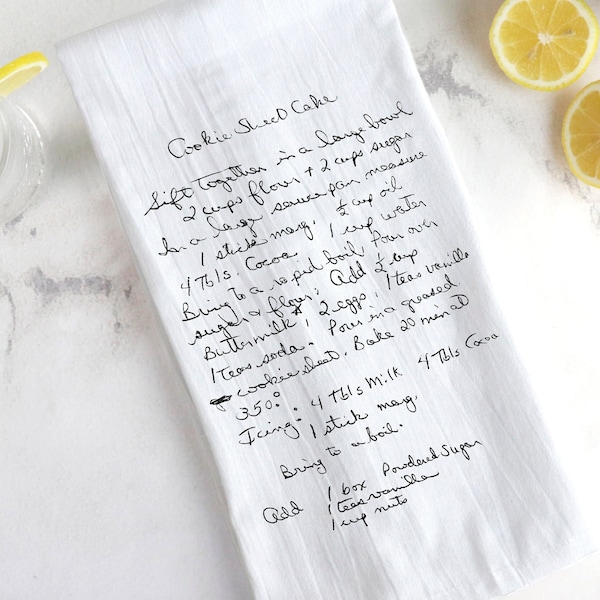 Cookie Sheet Cake
Sift together in a large bowl
2 cups flour + 2 cups sugar
In a large sauce pan measure
1 stick marg. ½ cup oil
4 Tbls. Cocoa 1 cup water
Bring to a rapid boil, Pour over
sugar & flour; Add ½ cup
Buttermilk, 2 eggs, 1 teas vanilla
1 teas soda. Pour in a greased
cookie sheet. Bake 20 min at
350°
Icing: 4 Tbls Milk 4 Tbls Cocoa
1 stick marg.
Bring to a boil.
Add 1 box Powdered Sugar
1 teas vanilla
1 cup nuts